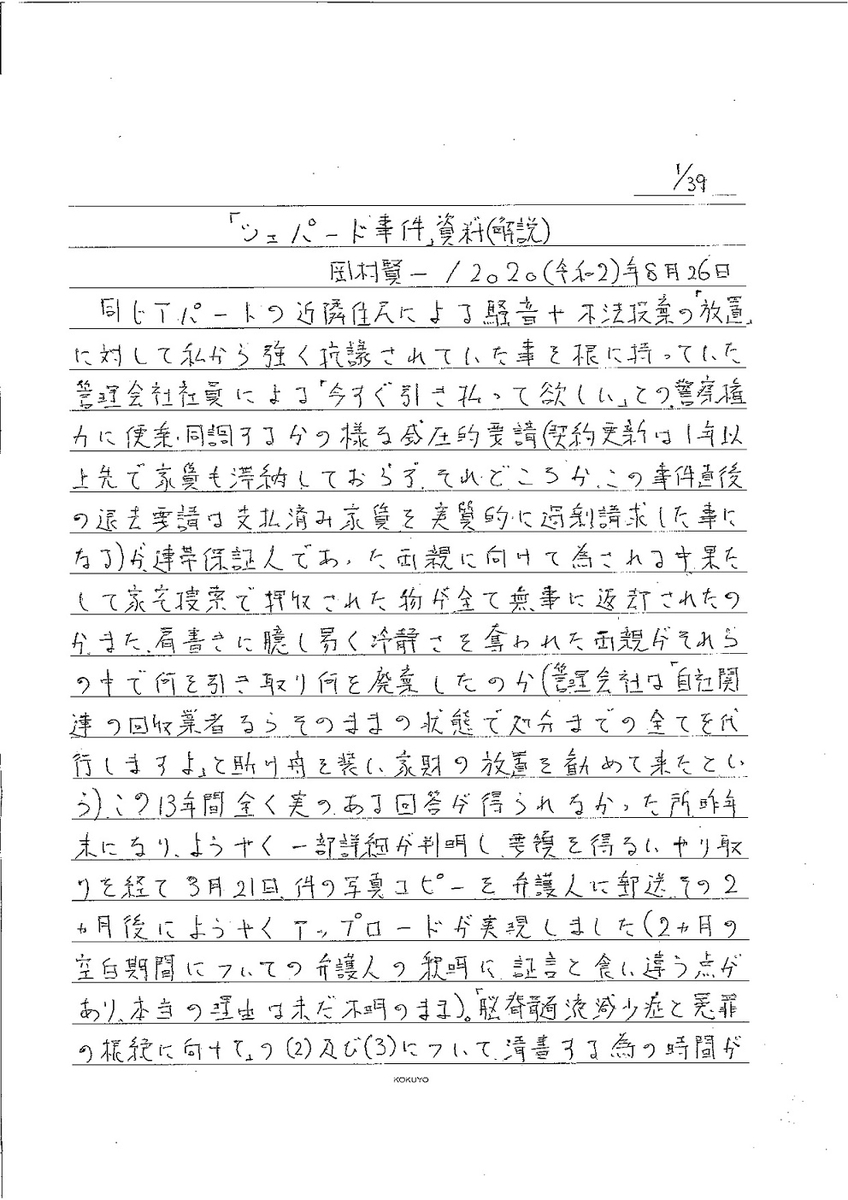 1/39
「シェパード事件」資料(解説)
岡村賢一/2020(令和2)年8月26日
同じアパートの近隣住民による騒音+不法投棄の「放置」
に対して私から強く抗議されていた事を根に持っていた
管理会社社員による「今すぐ引き払って欲しい」との、警察権
力に便乗・同調するかの様な威圧的要請(契約更新は1年以
上先で家賃も滞納しておらず、それどころか、この事件直後
の退去要請は支払済み家賃を実質的に過剰請求した事に
なる)が連帯保証人であった両親に向けて為される中、果た
して家宅捜索で押収された物が全て無事に返却されたの
か、また、肩書きに臆し易く冷静さを奪われた両親がそれら
の中で何を引き取り何を廃棄したのか(管理会社は「自社関
連の回収業者ならそのままの状態で処分までの全てを代
行しますよ」と助け舟を装い家財の放置を勧めて来たとい
う)、この13年間全く実のある回答が得られなかった所、昨年
末になり、ようやく一部詳細が判明し、要領を得ないやり取
りを経て3月21日、件の写真コピーを弁護人に郵送、その2
ヵ月後にようやくアップロードが実現しました(2ヵ月の
空白期間についての弁護人の釈明に証言と食い違う点が
あり、本当の理由は未だ不明のまま)。「脳脊髄液減少症と冤罪
の根絶に向けて」の(2)及び(3)について、清書する為の時間が
KOKUYO